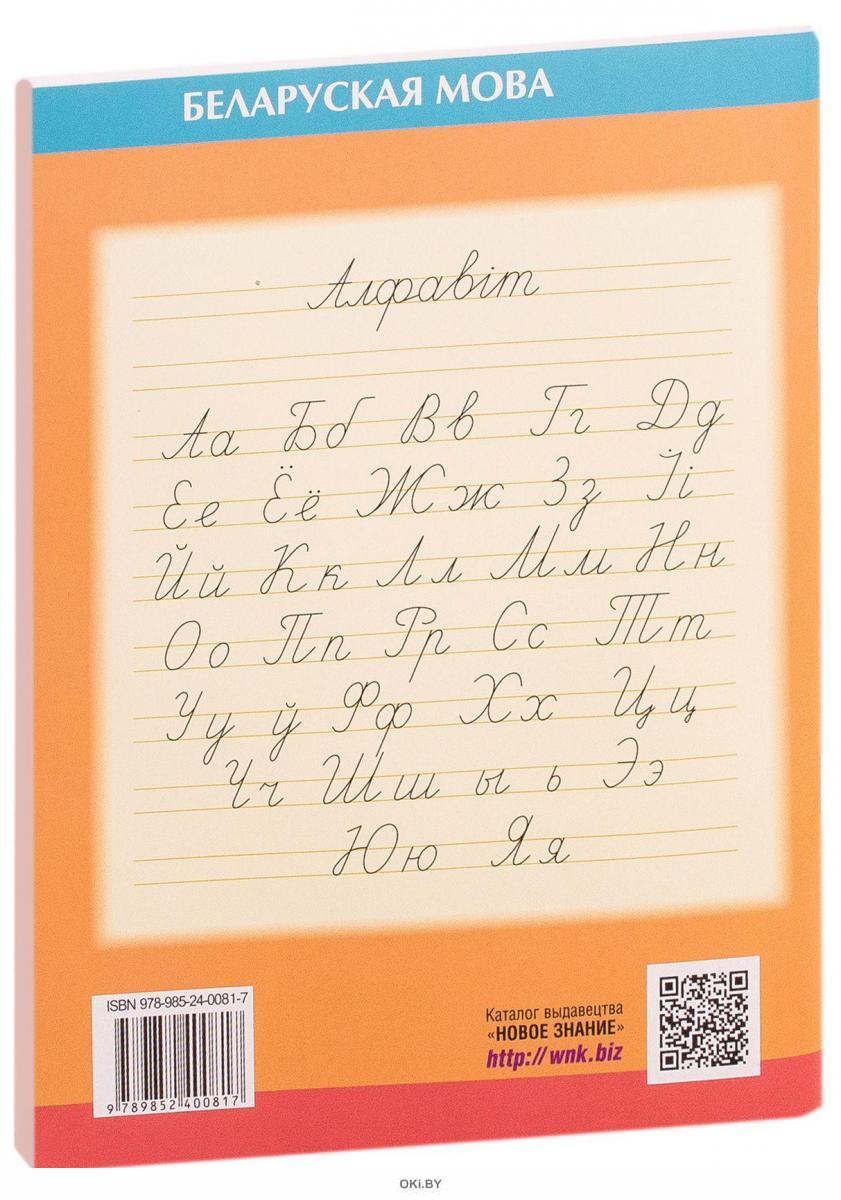 БЕЛАРУСКАЯ МОВА
Алфавіт
Аа Бб Вв Гг Дд
Ее Ёё Жж Зз Іі
Йй Кк Лл Мм Нн
Оо Пп Рр Сс Тт
Уу ў Фф Хх Цц
Чч Шш ы ь Ээ
Юю Яя
ISBN 978-985-24-0081-7
9 789852 400817
Каталог выдавецтва
«НОВОЕ ЗНАНИЕ»
http://wnk.biz
OKi.BY